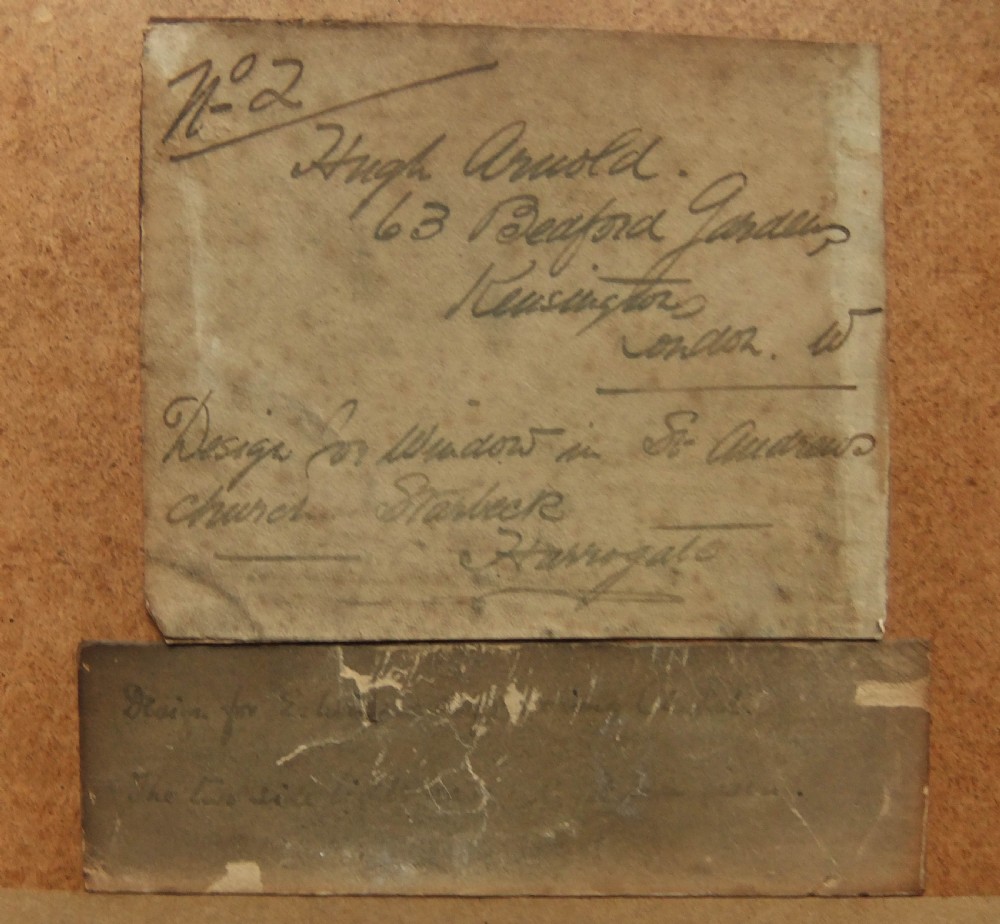 No 2
Hugh Arnold.
63 Bedford Gardens
Kensington
London. W
Design for Window in St Andrews
church Starbeck
Harrogate
Design for
The two side